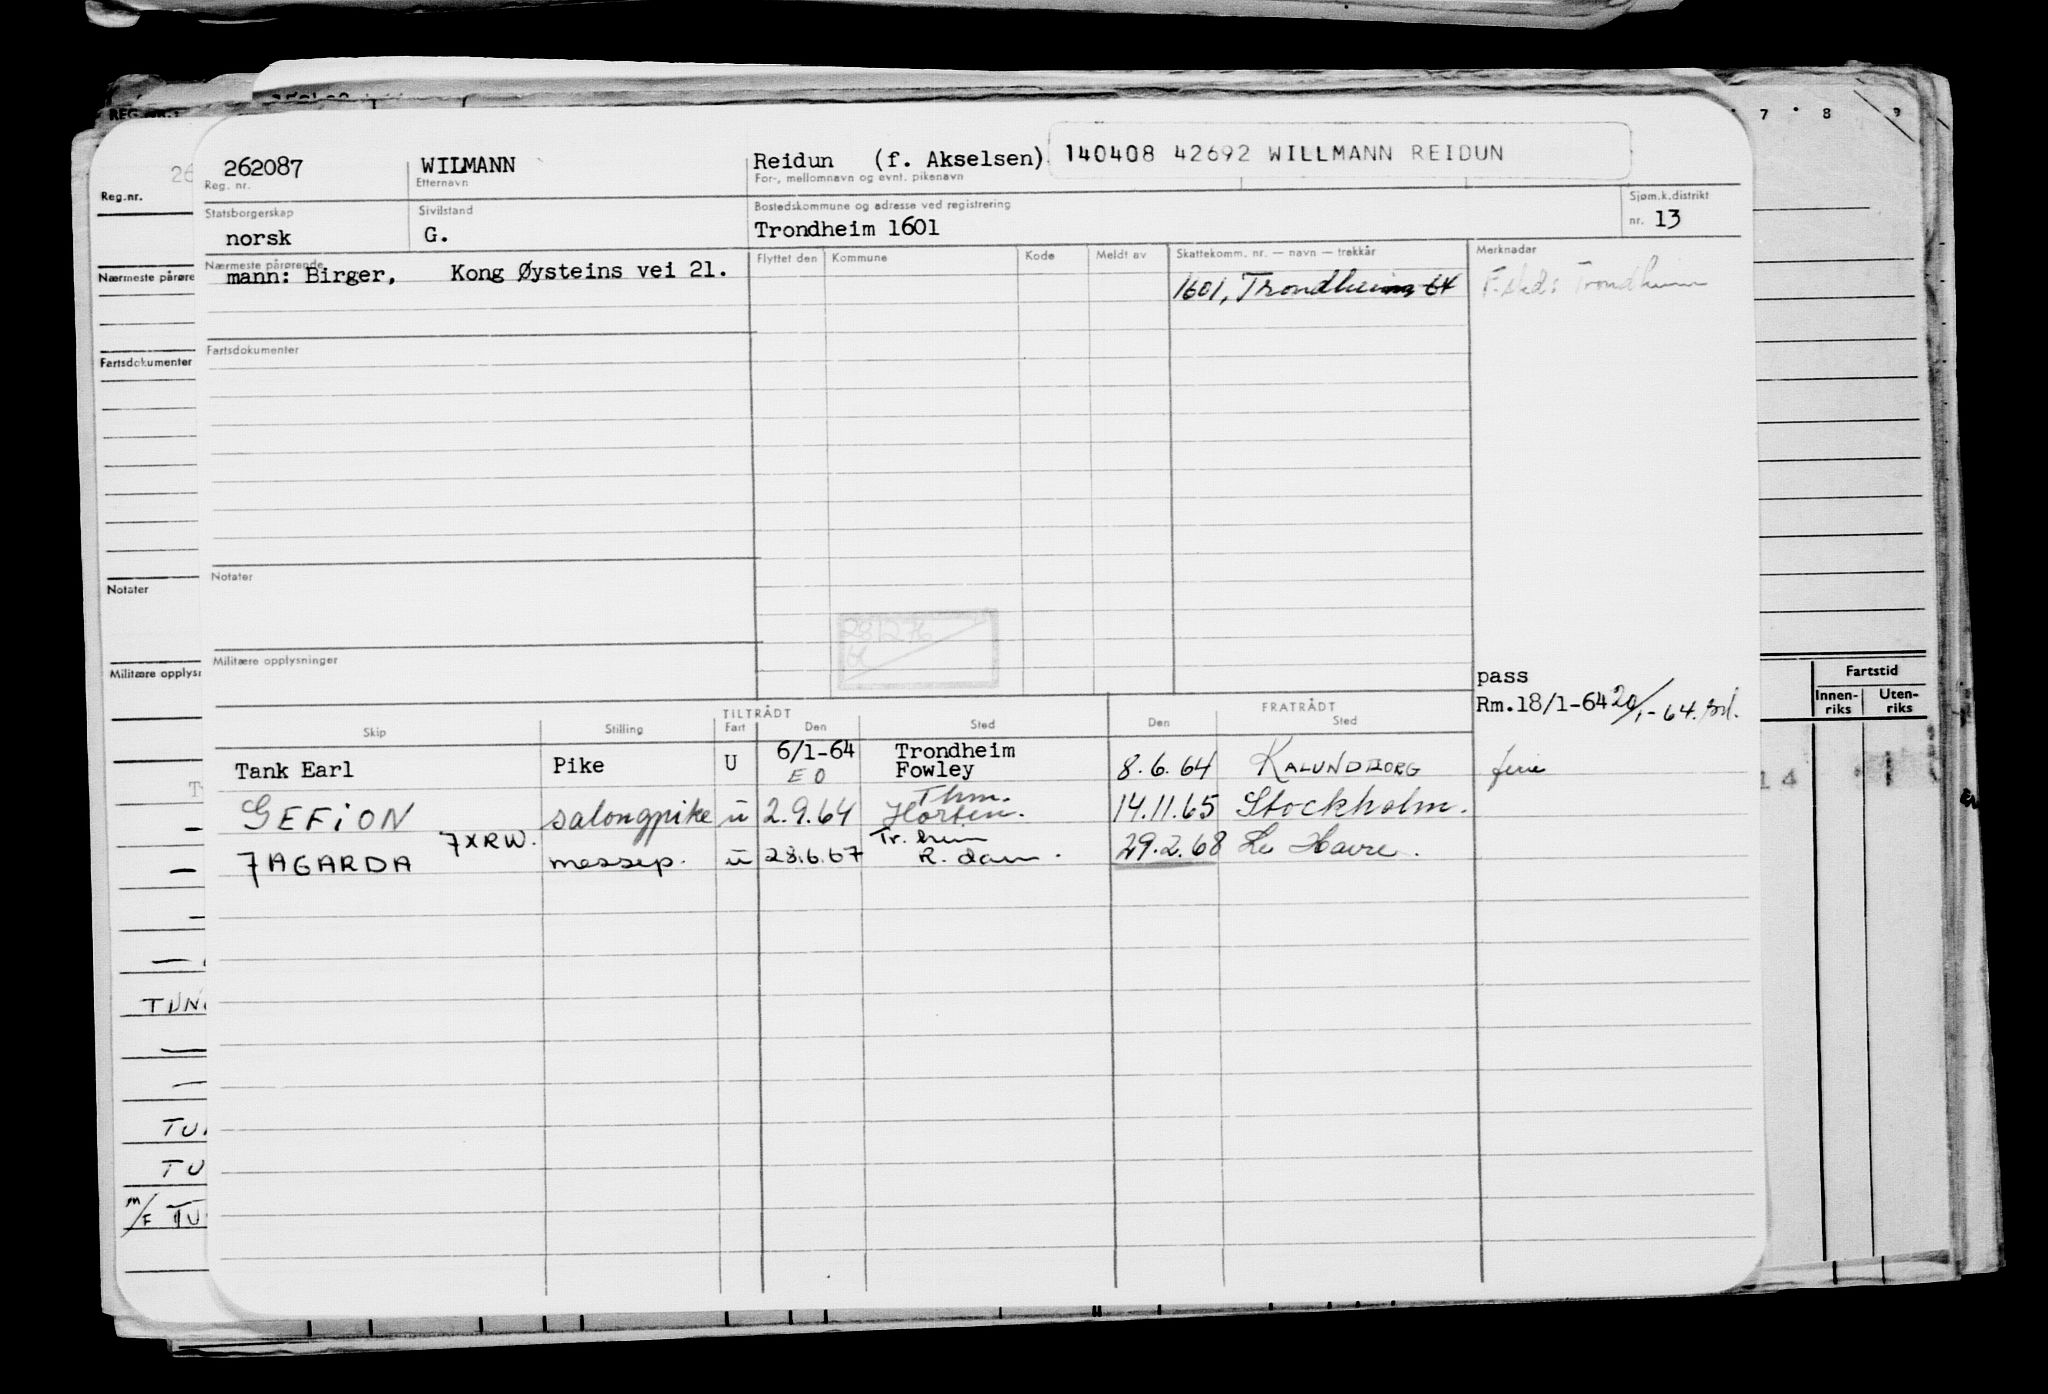 262087 WILMANN Reidun (f. Akselsen) 140408 42692 WILLMANN REIDUN
Reg. nr. Etternavn For-, mellomnavn og evnt. pikenavn
Statsborgerskap Sivilstand Bostedskommune og adresse ved registrering Sjøm.k.distrikt
norsk G. Trondheim 1601 nr. 13
Nærmeste pårørende Flyttet den Kommune Kode Meldt av Skattekomm. nr. — navn — trekkår Merknader
mann: Birger, Kong Øysteins vei 21. 1601, Trondheim 64 F.sted: Trondheim
Fartsdokumenter
Notater
Militære opplysninger
pass
Rm.18/1-64 20/1-64.
TILTRÅDT FRATRÅDT
Skip Stilling Fart Den Sted Den Sted
Tank Earl Pike U 6/1-64 Trondheim
E O Fowley 8.6.64 KALUNDBORG ferie
GEFION salongpike u 2.9.64 Thm. Horten. 14.11.65 Stockholm.
7AGARDA 7XRW. messep. u 28.6.67 Tr.heim R.dam. 29.2.68 Le Havre.
Reg.nr.
Nærmeste pårøre
Fartsdokumenter
Notater
Militære opplys
TUN
TU
TU
M/F TU
7 8 9
Fartstid
Innen-riks Uten-riks
14